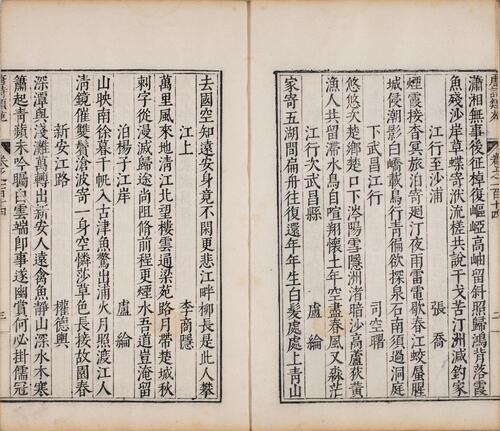 瀟湘無事後征棹復嶇崆高岫留斜照歸鴻背落霞
魚殘沙岸草蝶寄洑流槎共說干戈苦汀洲減釣家
江行至沙浦 張喬
煙霞接杳冥旅泊寄迴汀夜雨雷電歇春江蛟蜃腥
城侵潮影白嶠截鳥行青徧欲探泉石南須過洞庭
下武昌江行 司空曙
悠悠次楚鄉楚口下涔陽雪隱洲渚暗沙高蘆荻黃
漁人共留滯水鳥自喧翔懷土年空盡春風又淼茫
江行次武昌縣 盧綸
家寄五湖間扁舟往復還年年生白髮處處上青山
去國空知遠安身竟不閑更悲江畔柳長是此人攀
江上 李商隱
萬里風來地清江北望樓雲通梁苑路月帶楚城秋
刺字從漫滅歸途尚阻脩前程更煙水吾道豈淹留
泊楊子江岸 盧綸
山映南徐暮千帆入古津魚驚出浦火月照渡江人
清鏡催雙鬢滄波寄一身空憐莎草色長接故園春
新安江路 權德輿
深潭與淺灘萬轉出新安人遠禽魚靜山深水木寒
簫起青蘋末吟矚白雲端即事遂幽賞何必掛儒冠
三